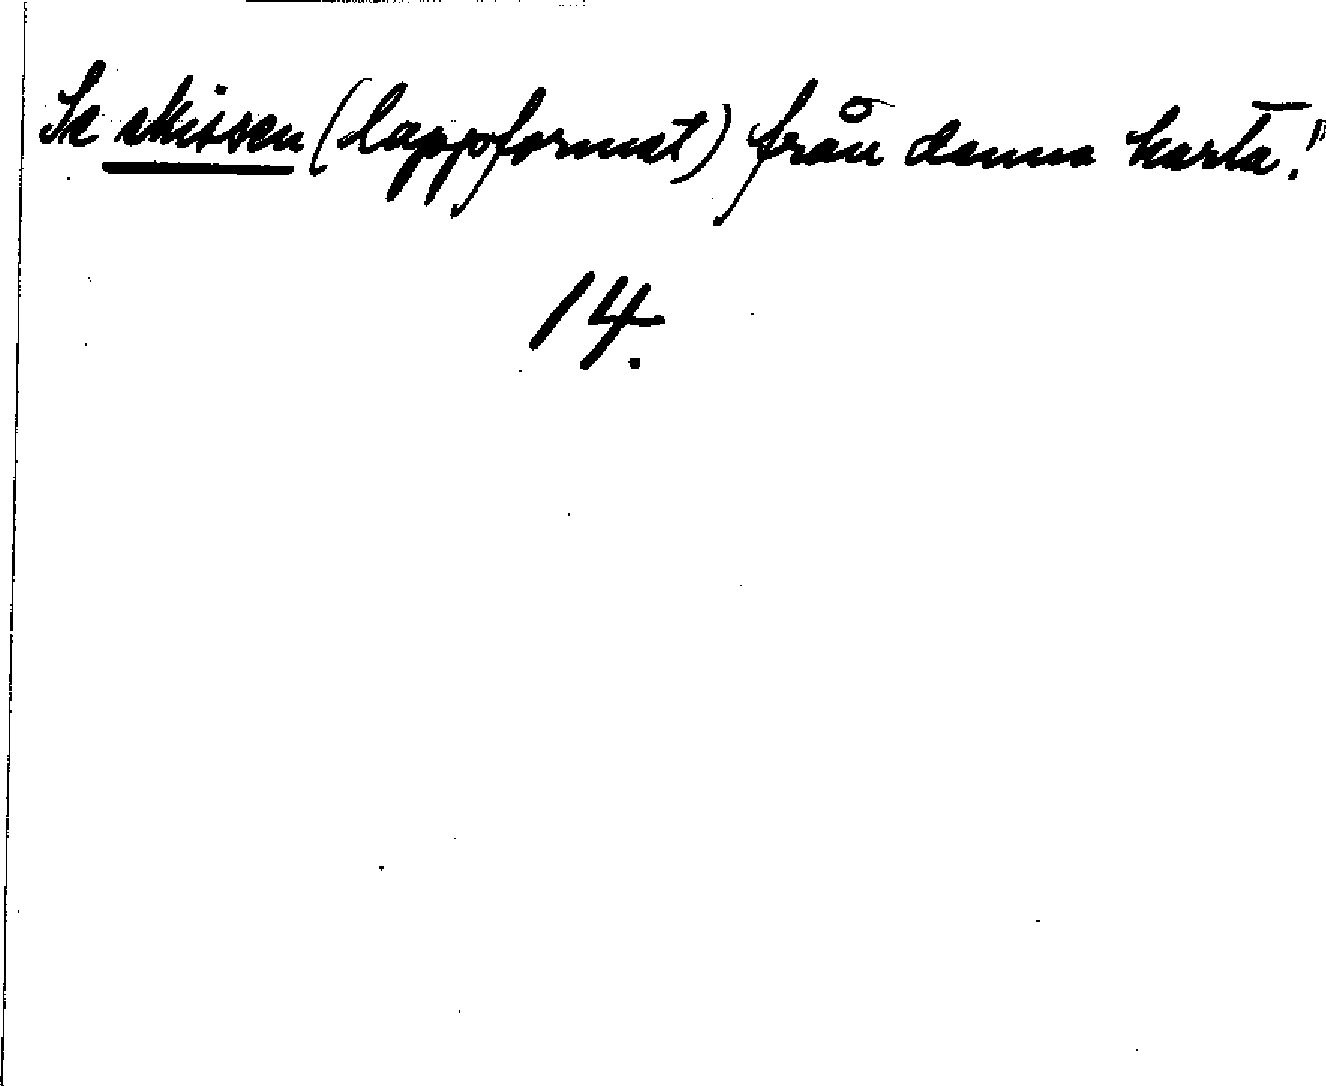 Se skissen (lappformat) från denna karta!
14.